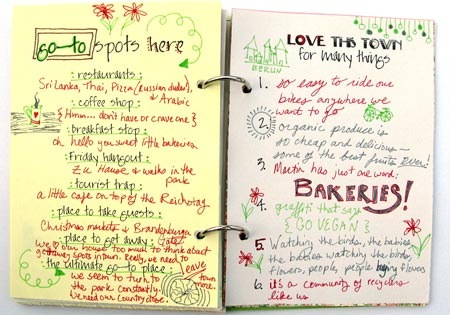 go-to spots here
: restaurants :
Sri Lanka, Thai, Pizza (Russian dudes),
& Arabic
: coffee shop :
{ Hmm... don't have or crave one }
: breakfast stop :
oh hello you sweet little bakeries
: Friday hangout :
Zu Hause & walks in the
park
: tourist trap :
a little cafe on top of the Reichstag
: place to take guests :
Christmas markets & Brandenburg
: place to get away : Gates
we ♡ our house too much to think about
getaway spots in town. Really, we need to
leave
: the ultimate go-to place : town
more.
we seem to turn to
the park constantly.
We need our country dose.
LOVE THIS TOWN
for many things
BERLIN
1. so easy to ride our
bikes anywhere we
want to go
2. organic produce is
so cheap and delicious —
some of the best fruits ever!
3. Martin has just one word:
BAKERIES!
4. graffiti that says
{ GO VEGAN }
5. Watching the birds, the babies
the babies watching the birds,
flowers, people, people buying flowers
6. it's a community of recyclers
like us